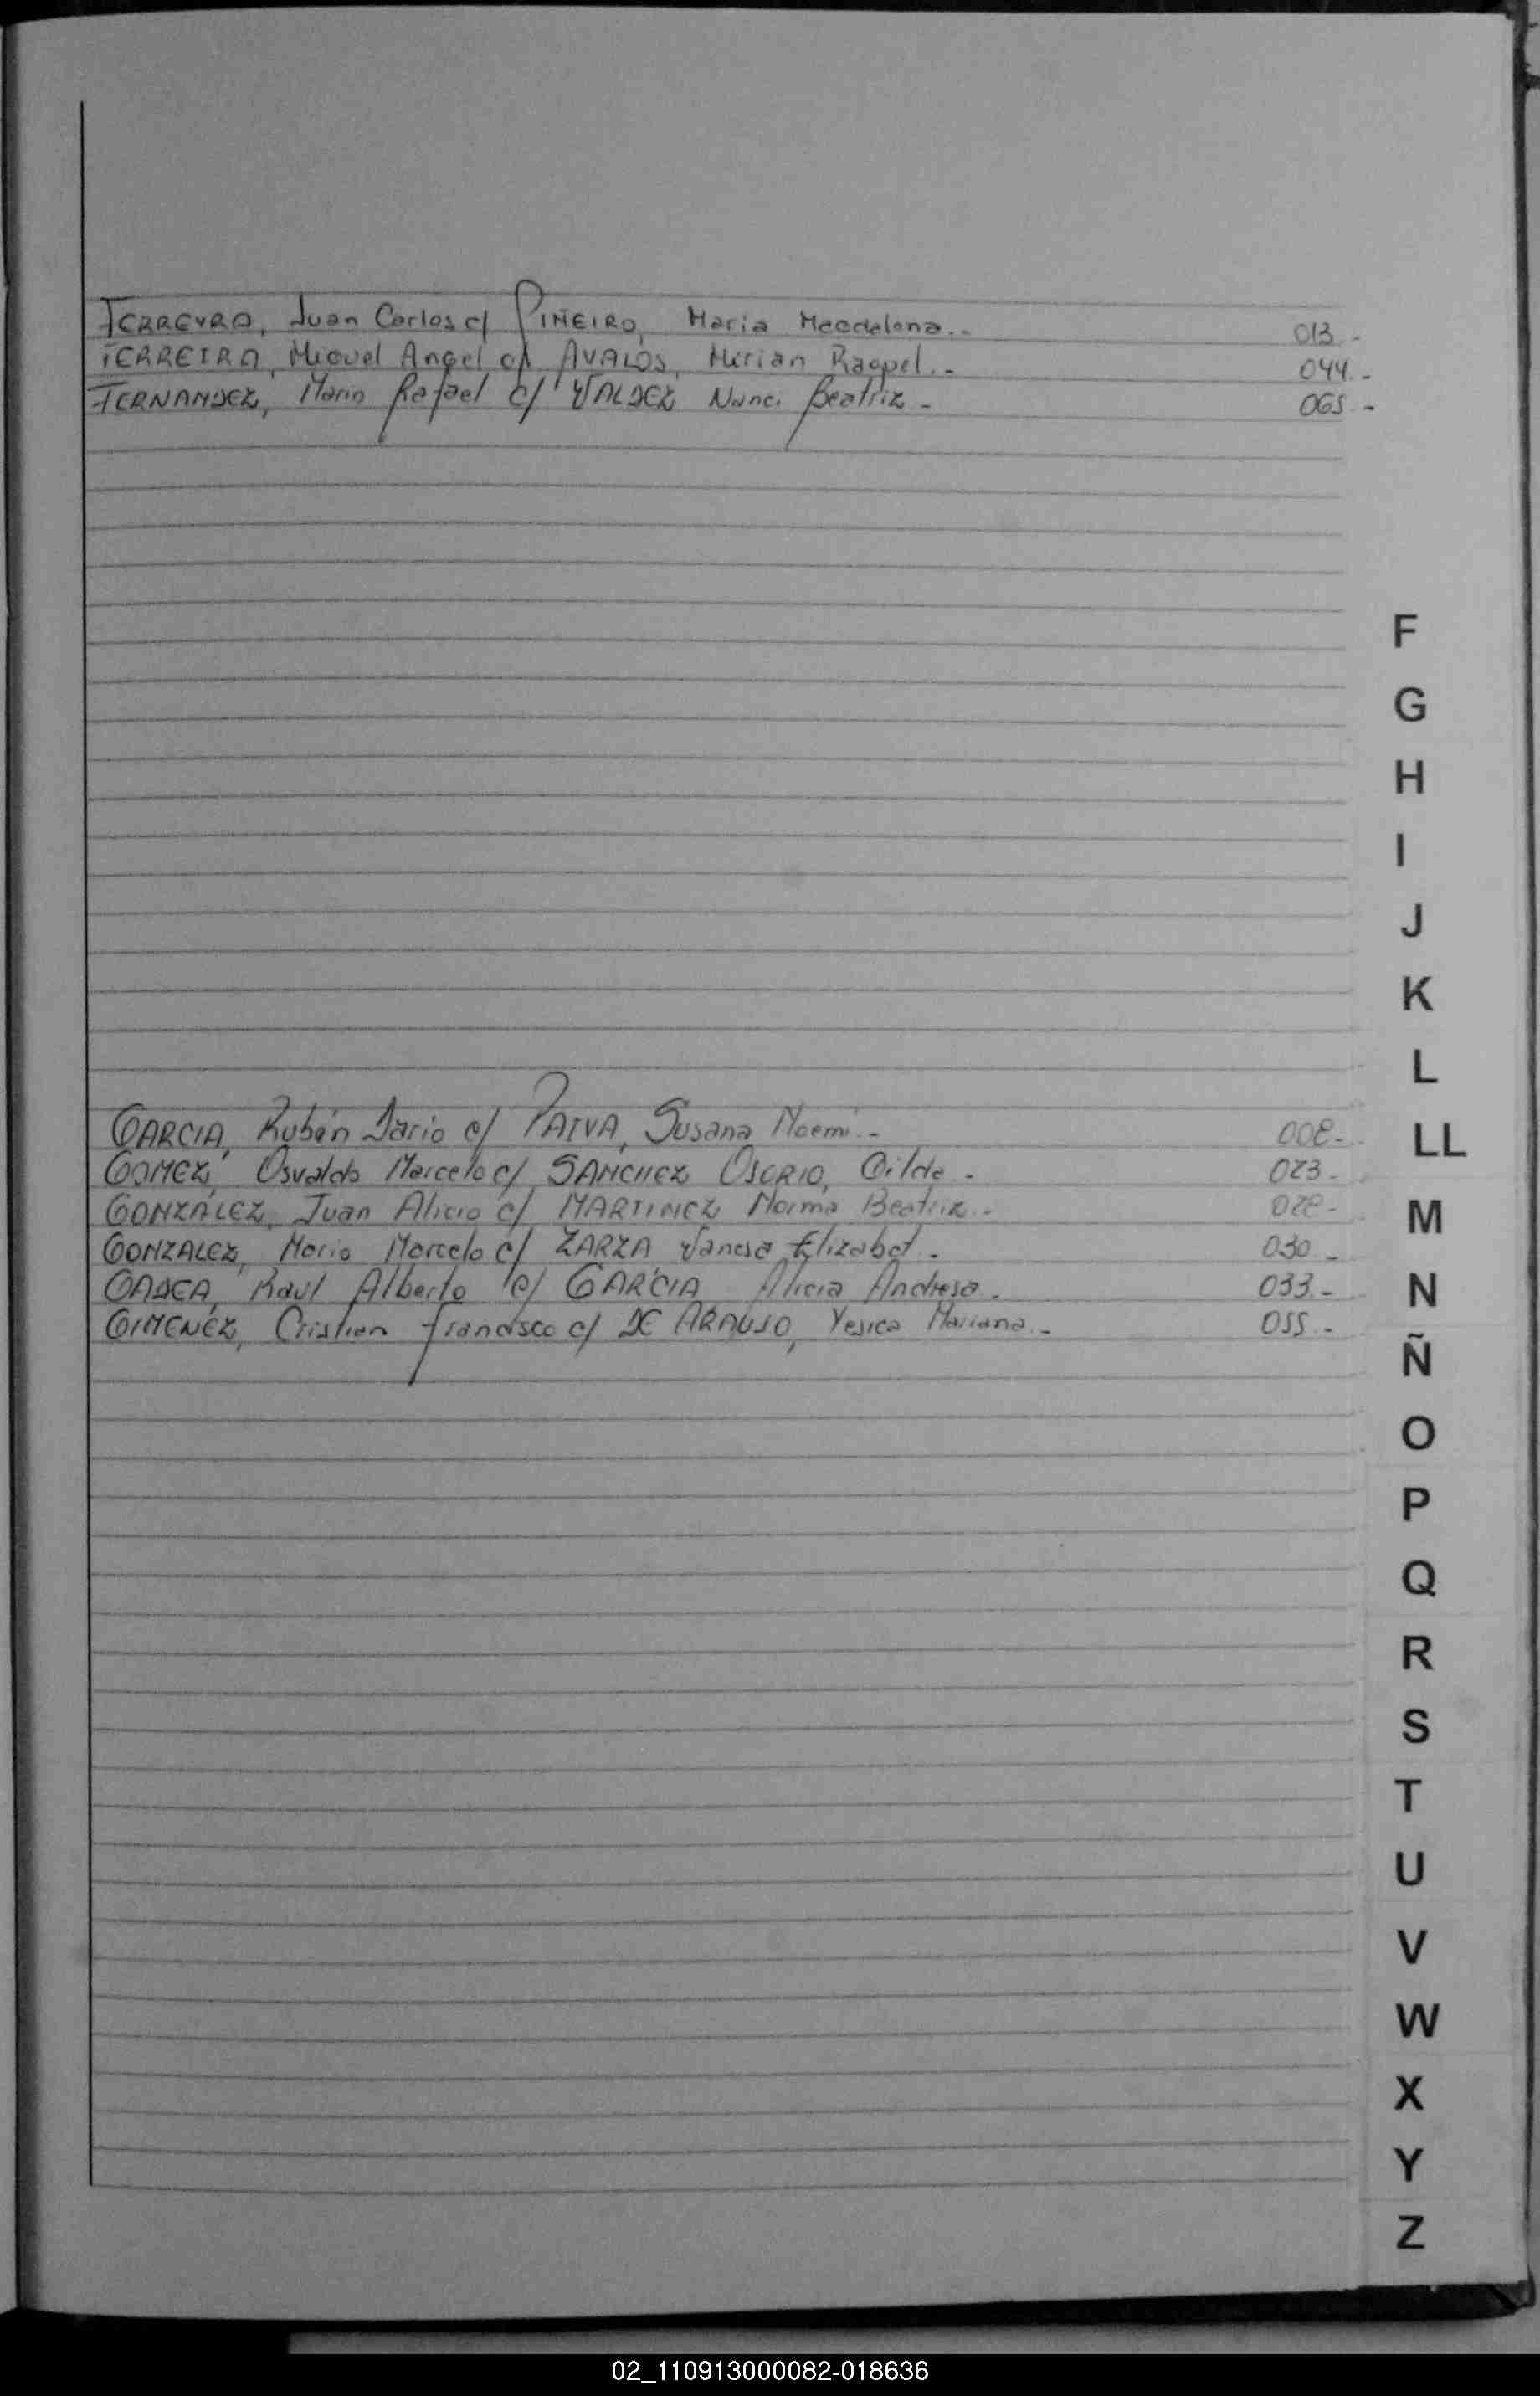 FERREYRA, Juan Carlos c/ PIÑEIRO, Maria Magdalena.- 013.-
FERREIRA, Miguel Angel c/ AVALOS, Mirian Raquel.- 044.-
FERNANDEZ, Mario Rafael c/ VALDEZ Nanci Beatriz.- 065.-
F
G
H
I
J
K
L
GARCIA, Rubén Dario c/ PAIVA, Susana Noemi.- 008.-
LL
GOMEZ, Osvaldo Marcelo c/ SANCHEZ OSORIO, Gilda.- 023.-
GONZALEZ, Juan Alicio c/ MARTINEZ Norma Beatriz.- 028.-
M
GONZALEZ, Mario Marcelo c/ ZARZA Vanesa Elizabet.- 030.-
GADEA, Raul Alberto c/ GARCIA Alicia Andresa.- 033.-
N
GIMENEZ, Cristian Francisco c/ DE ARAUJO, Yesica Mariana.- 055.-
Ñ
O
P
Q
R
S
T
U
V
W
X
Y
Z
02_110913000082-018636